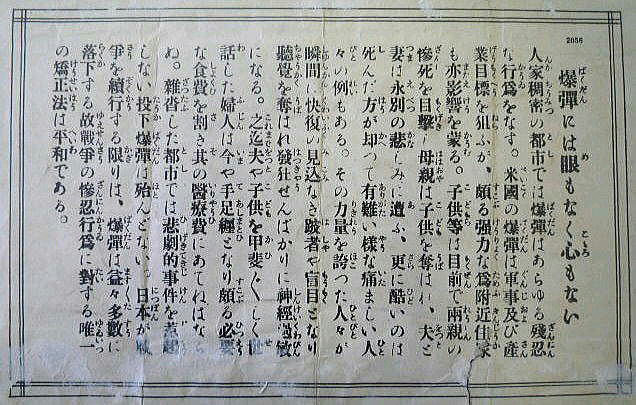 2056
爆彈には眼もなく心もない
人家稠密の都市では爆彈はあらゆる殘忍
な行爲をなす。米國の爆彈は軍事及び產
業目標を狙ふが、頗る强力な爲附近住家
も亦影響を蒙る。子供等は目前で兩親の
慘死を目擊し、母親は子供を奪はれ、夫と
妻は永別の悲しみに遭ふ、更に酷いのは
死んだ方が却つて有難い樣な痛ましい人
々の例もある。その力量を誇つた人々が
瞬間に快復の見込なき跛者や盲目となり
聽覺を奪はれ發狂せんばかりに神經過敏
になる。之迄夫や子供を甲斐〱しく世
話した婦人は今や手足纏となり頗る必要
な食費を割き其の醫療費にあてねばなら
ぬ。雜沓した都市では悲劇的事件を惹起
しない投下爆彈は殆んどない。日本が戰
爭を續行する限りは、爆彈は益々多數に
落下する故戰爭の慘忍行爲に對する唯一
の矯正法は平和である。